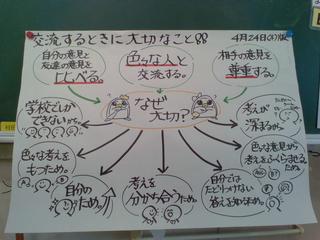 交流するときに大切なこと!!
4月24日(月)版
自分の意見と
友達の意見を
比べる。
色々な人と
交流する。
相手の意見を
尊重する。
なぜ
大切?
学校でしか
できないから。
考えが
深まるから。
色々な考えを
もつため。
色々な意見から
考えをふくらませる
ため。
自分の
ため。
考えを
分かち合うため。
自分では
たどりつけない
答えを知るため。